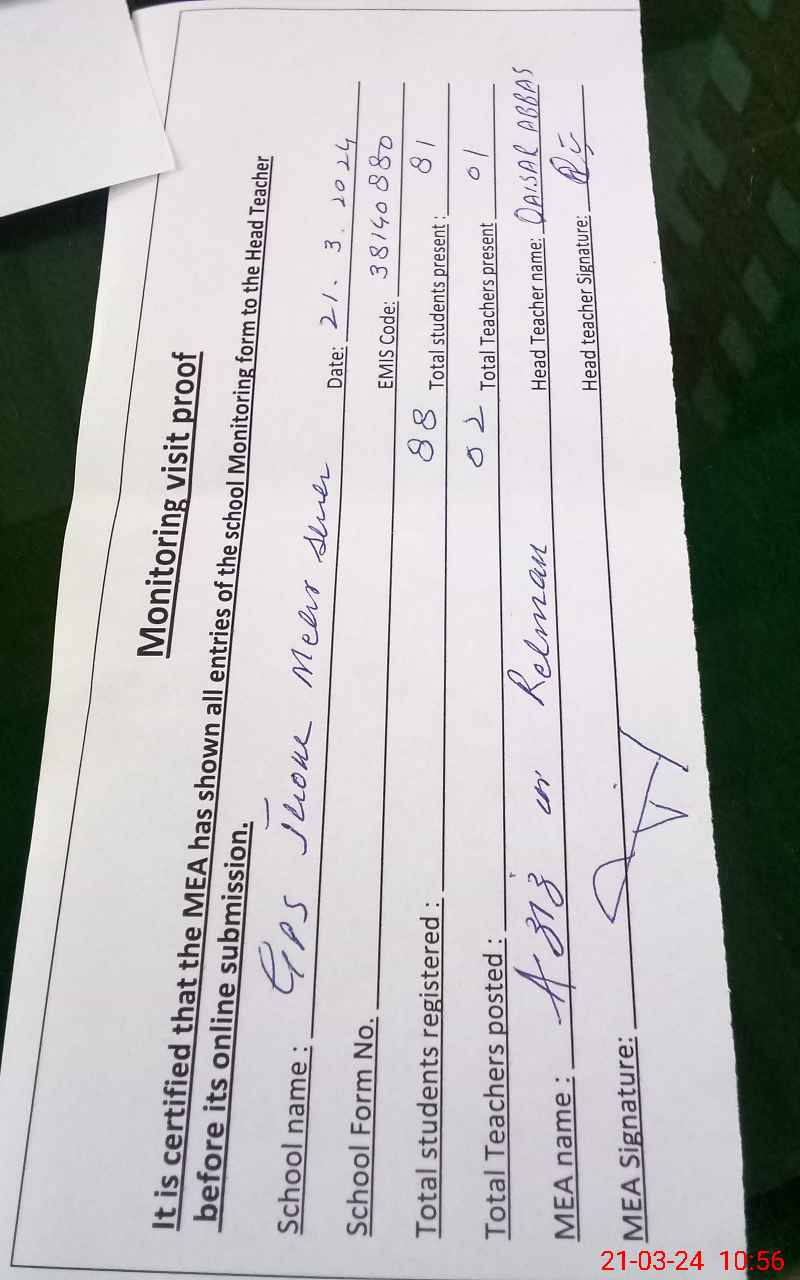 Monitoring visit proof
It is certified that the MEA has shown all entries of the school Monitoring form to the Head Teacher
before its online submission.
School name : GPS Date: 21. 3. 2024
School Form No. EMIS Code: 38140880
Total students registered : 88 Total students present : 81
Total Teachers posted : 02 Total Teachers present 01
MEA name : Aziz ur Rehman Head Teacher name: QAISAR ABBAS
MEA Signature: Head teacher Signature:
21-03-24 10:56